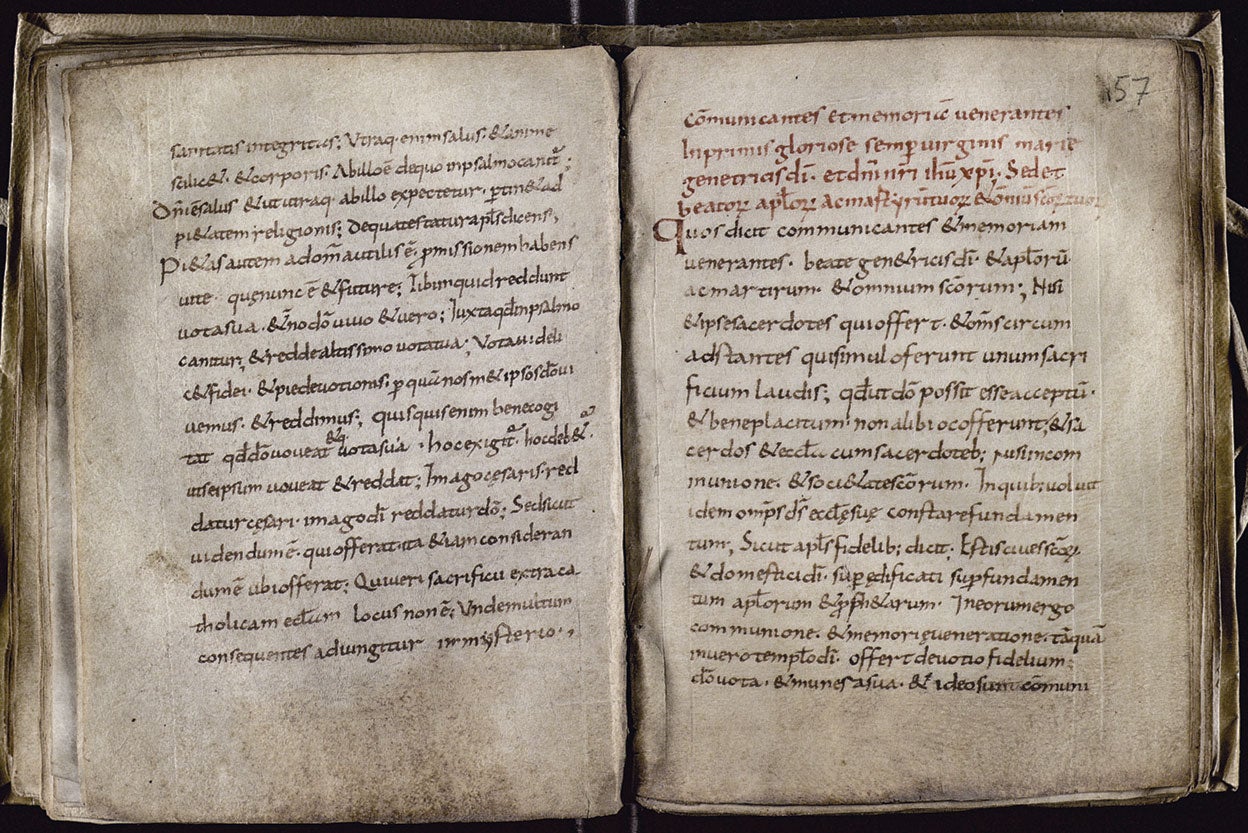 sanitatis integritas; Vtraq· enim salus· & anime
scilic&· & corporis· Abillo ē dequo inpsalmo canit̄;
Dn̄i ē salus & ut utraq· abillo expectetur· p̄tin& ad
pi&atem religionis; Dequa testatur apl̄s dicens;
Pi&as autem adom̄a utilis ē· p̄missionem habens
uite· quę nunc ē & future; Tibi inquid reddunt
uota sua· &ern̄o dō uiuo & uero; Iuxta qd̄ inpsalmo
canitur; & redde altissimo uota tua; Vota uideli
c& fidei· & pie deuotionis· p̄ quā nosm& ipsos dō ui
uemus· & reddimus; quisquis enim bene cogi
tat qd̄ dō uoueat &q· uota sua· hoc exigit̄· hoc deb&·
ut seipsum uoueat & reddat; Imago cęsaris red
datur cęsari· imago dī reddatur dō; Sed sicut
uidendum ē· qui offerat· ita & iam consideran
dum ē ubi offerat; Qui ueri sacrificii extra ca
tholicam eccl̄am locus non ē; Vnde multum
consequentes adiungitur in mysterio·,
157
cōmunicantes et memoriā venerantes
Inprimis gloriose semp̄ uirginis marię
genetricis dī· et dn̄i nr̄i ihū xp̄i· Sed et
beatorum apl̄orum ac martyrum tuorum & omniū scōrum tuorum
Quos dicit communicantes & memoriam
uenerantes· beate gen&ricis dī· & apl̄orū
ac martirum· & omnium scōrum; Nisi
& ipse sacerdotes qui offert· & om̄s circum
adstantes qui simul oferunt unum sacri
ficium laudis; qd̄ ut dō possit esse acceptū·
& beneplacitum· non alibi ocofferunt; & sa
cerdos & eccl̄a cum sacerdoteb; nisi incom
munione· & soci&ate scōrum· In quib; uoluit
idem omp̄s dī s̄ ecclęsię suę constare fundamen
tum; Sicut apl̄s fidelib; dicit· Estis ciues scōrum
& domestici dī· sup̄ędificati sup̄ fundamen
tum apl̄orum & p̄ph&arum· In eorum ergo
communione· & memorię ueneratione· tāquā
in uero templo dī· offert deuotio fidelium
dō uota· & munera sua· & ideo sunt cōmuni